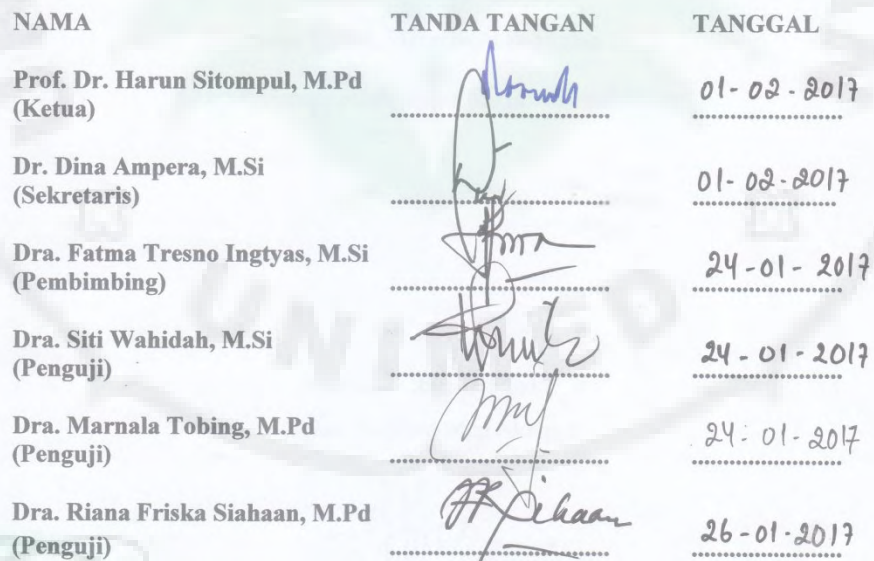 NAMA TANDA TANGAN TANGGAL
Prof. Dr. Harun Sitompul, M.Pd
(Ketua) 01-02-2017
Dr. Dina Ampera, M.Si
(Sekretaris) 01-02-2017
Dra. Fatma Tresno Ingtyas, M.Si
(Pembimbing) 24-01-2017
Dra. Siti Wahidah, M.Si
(Penguji) 24-01-2017
Dra. Marnala Tobing, M.Pd
(Penguji) 24-01-2017
Dra. Riana Friska Siahaan, M.Pd
(Penguji) 26-01-2017
UNIMED